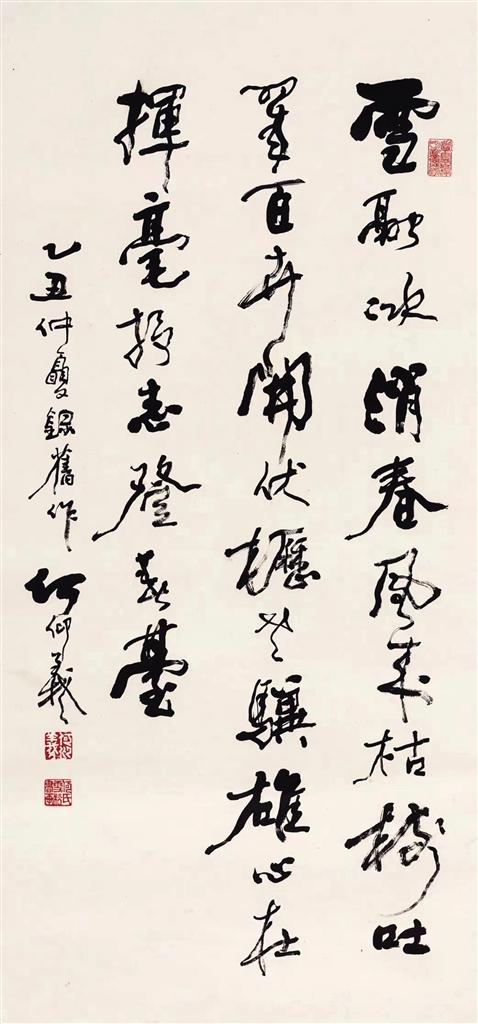 雪融冰消春風來枯樹吐
翠百卉開伏櫪老驥雄心在
揮毫抒志登臺
乙丑仲夏錄舊作 何仰羲